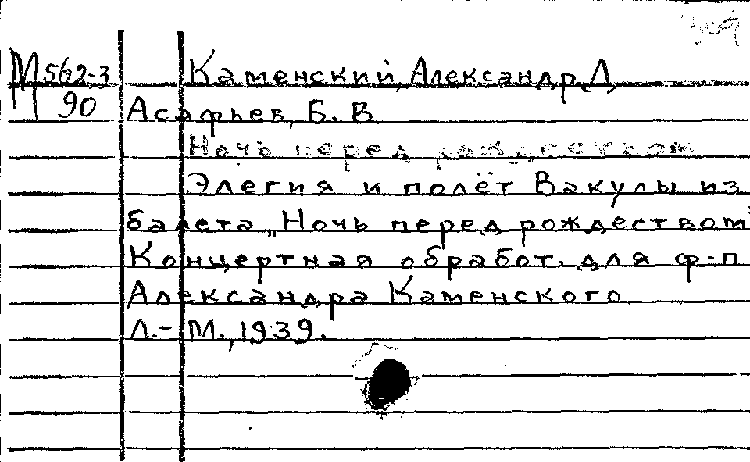 М 562-3 Каменский, Александр Д.
П 90 Асафьев, Б. В.
Ночь перед рождеством
Элегия и полёт Вакулы из
балета „Ночь перед рождеством"
Концертная обработ. для ф-п
Александра Каменского
Л.-М., 1939.